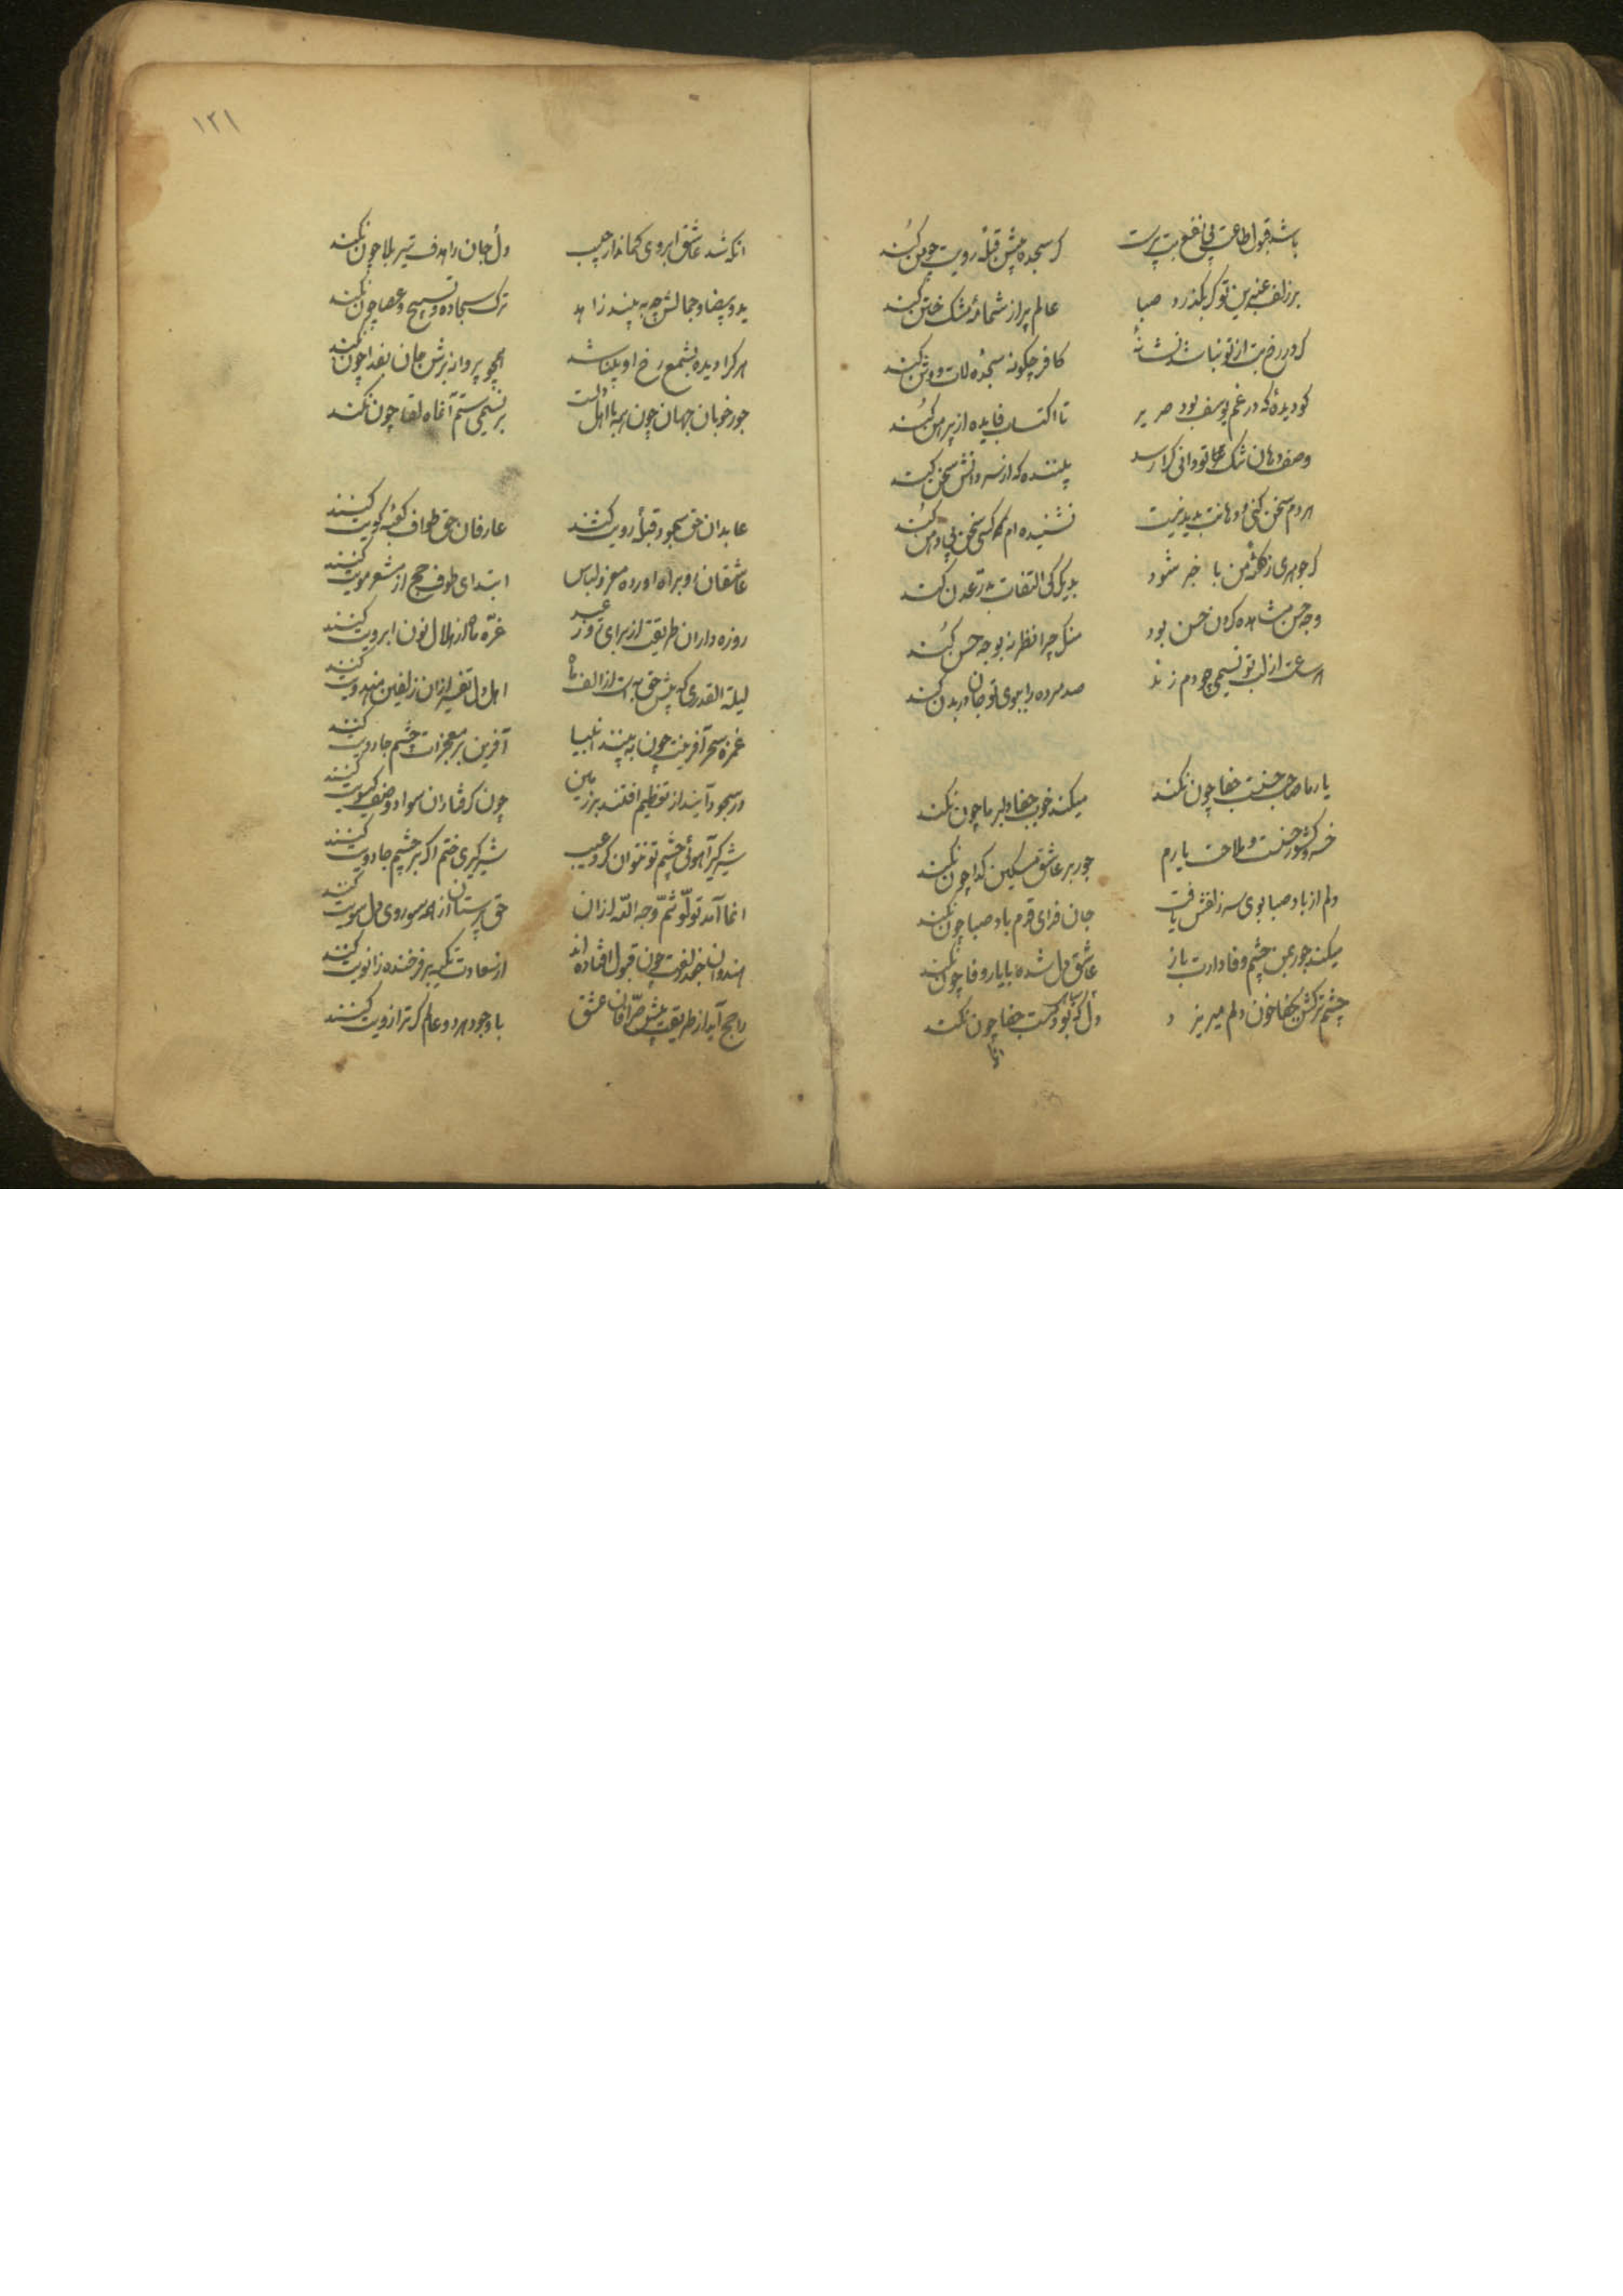 باشد قبول طاعت بی نفع بت پرست کر سجده پیش قبلهٔ رویت چو من کند
بر زلف عنبرین تو کر بکذرد صبا عالم پر از شمامهٔ مشک ختن کند
کر در رخ بت از تو نباشد نشانهٔ کافر چکونه سجدهٔ لات و وثن کند
کو دیدهٔ که در غم یوسف بود ضریر تا اکتساب فایده از پیرهن کند
وصف دهان تنک تو دانی کرا رسد
هر دم سخن کنی و دهانت پدید نیست نشنیده ام که کس سخن بی دهن کند
کر جوهری ز نکته من با خبر شود بد یک کی التفات بدر عدن کند
وجه حسن مشاهده کردن حسن بود منکر چرا نظر نه بوجه حسن کند
هر ساعت از لب تو نسیمی چو دم زند صد مرده را ببوی تو جان در بدن کند
یار ما صاحب حسنست جفا چون نکند میکند خوب جفا دلبر ما چون نکند
خسرو کشور حسنست و ملاحت یارم جور بر عاشق مسکین کدا چون نکند
دلم از باد صبا بوی سر زلفش یافت جان فدای قدم باد صبا چون نکند
میکند جور بمن چشم وفا دارت باز عاشق دل شده با یار وفا چون نکند
چشم ترکش بجفا خون دلم میریزد جفا چون نکند
انکه
۱۲۱
انکه شد عاشق ابروی کماندار حبیب دل و جان را هدف تیر بلا چون نکند
ید و بیضا و جمالش چو به بیند زاهد ترک سجاده و تسبیح و عصا چون نکند
هر کرا دیده بشمع رخ او بینا شد همچو پروانه برش جان بفدا چون نکند
جور خوبان جهان چون همه با اهل دلست بر نسیمی ستم آن ماه لقا چون نکند
عابدان حق سجود قبلهٔ رویت کنند عارفان حق طواف کعبهٔ کویت کنند
عاشقان رو براه اورده معزول لباس ابتدای طوف حج از مشعر مویت کنند
روزه داران طریقت از برای روز عید غرّه ماه از هلال نون ابرویت کنند
لیلة القدری که پیش حق به است از الف ماه اهل دل تفسیر ان زلفین هندویت کنند
غمزهٔ سحر آفرینت چون به بینند انبیا آفرین بر معجزات چشم جادویت کنند
در سجود آیند از تعظیم افتند بر زمین چون کرفتاران سواد وصف کیسویت کنند
شیر کیر آهوئی چشم تو نتوان کرد عیب شیر کیری ختم اکر بر چشم جادویت کنند
انما آمد تولّوا ثمّ وجه اللّه ازان حق پرستان از همه سو روی دل سویت کنند
هندوان جعد زلفت چون قبول افتاده اند از سعادت تکیه بر فرخنده زانویت کنند
راجح آید از طریقت پیش صرّافان عشق با وجود هر دو عالم کر ترازویت کنند